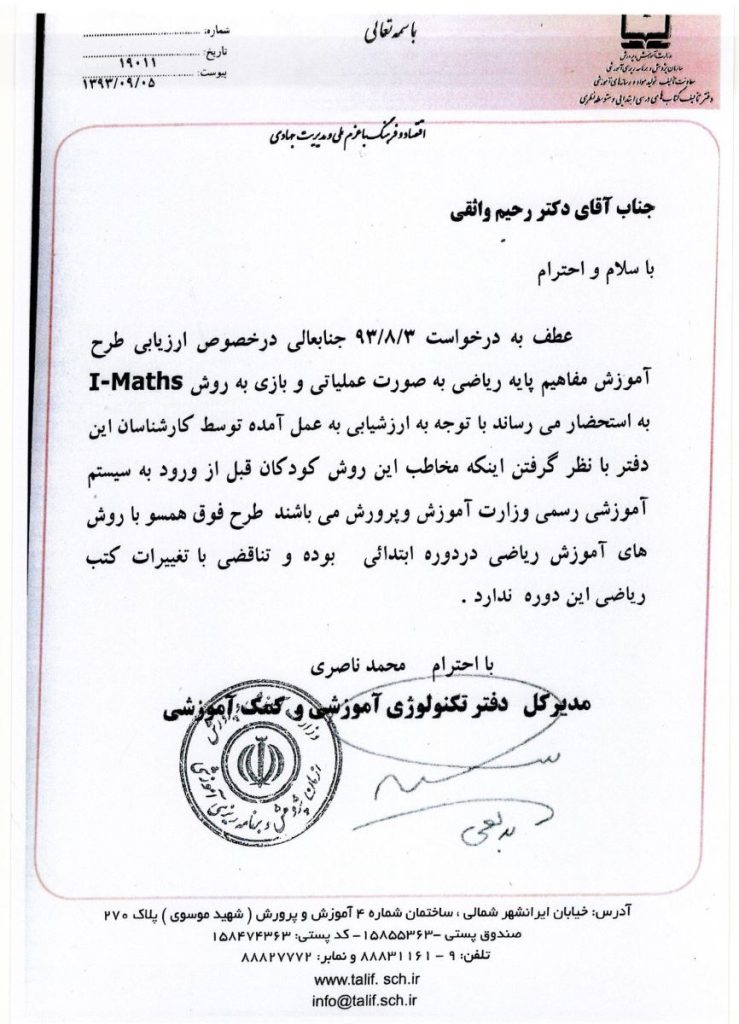 باسمه تعالی
شماره:
تاریخ:
۱۹۰۱۱
پیوست:
۱۳۹۳/۰۹/۰۵
وزارت آموزش و پرورش
سازمان پژوهش و برنامه ریزی آموزشی
معاونت تألیف، تولید مواد و رسانه‌های آموزشی
دفتر تألیف کتاب‌های درسی ابتدایی و متوسطه نظری
اقتصاد و فرهنگ با عزم ملی و مدیریت جهادی
جناب آقای دکتر رحیم واثقی
با سلام و احترام
عطف به درخواست ۹۳/۸/۳ جنابعالی درخصوص ارزیابی طرح
آموزش مفاهیم پایه ریاضی به صورت عملیاتی و بازی به روش I-Maths
به استحضار می رساند با توجه به ارزشیابی به عمل آمده توسط کارشناسان این
دفتر با نظر گرفتن اینکه مخاطب این روش کودکان قبل از ورود به سیستم
آموزشی رسمی وزارت آموزش وپرورش می باشند طرح فوق همسو با روش
های آموزش ریاضی دردوره ابتدائی بوده و تناقضی با تغییرات کتب
ریاضی این دوره ندارد .
با احترام محمد ناصری
مدیرکل دفتر تکنولوژی آموزشی و کمک آموزشی
آدرس: خیابان ایرانشهر شمالی ، ساختمان شماره ۴ آموزش و پرورش ( شهید موسوی ) پلاک ۲۷۰
صندوق پستی -۱۵۸۵۵۳۶۳- کد پستی: ۱۵۸۴۷۴۳۶۳
تلفن: ۹ - ۸۸۸۳۱۱۶۱ و نمابر: ۸۸۸۲۷۷۷۲
www.talif. sch.ir
info@talif.sch.ir